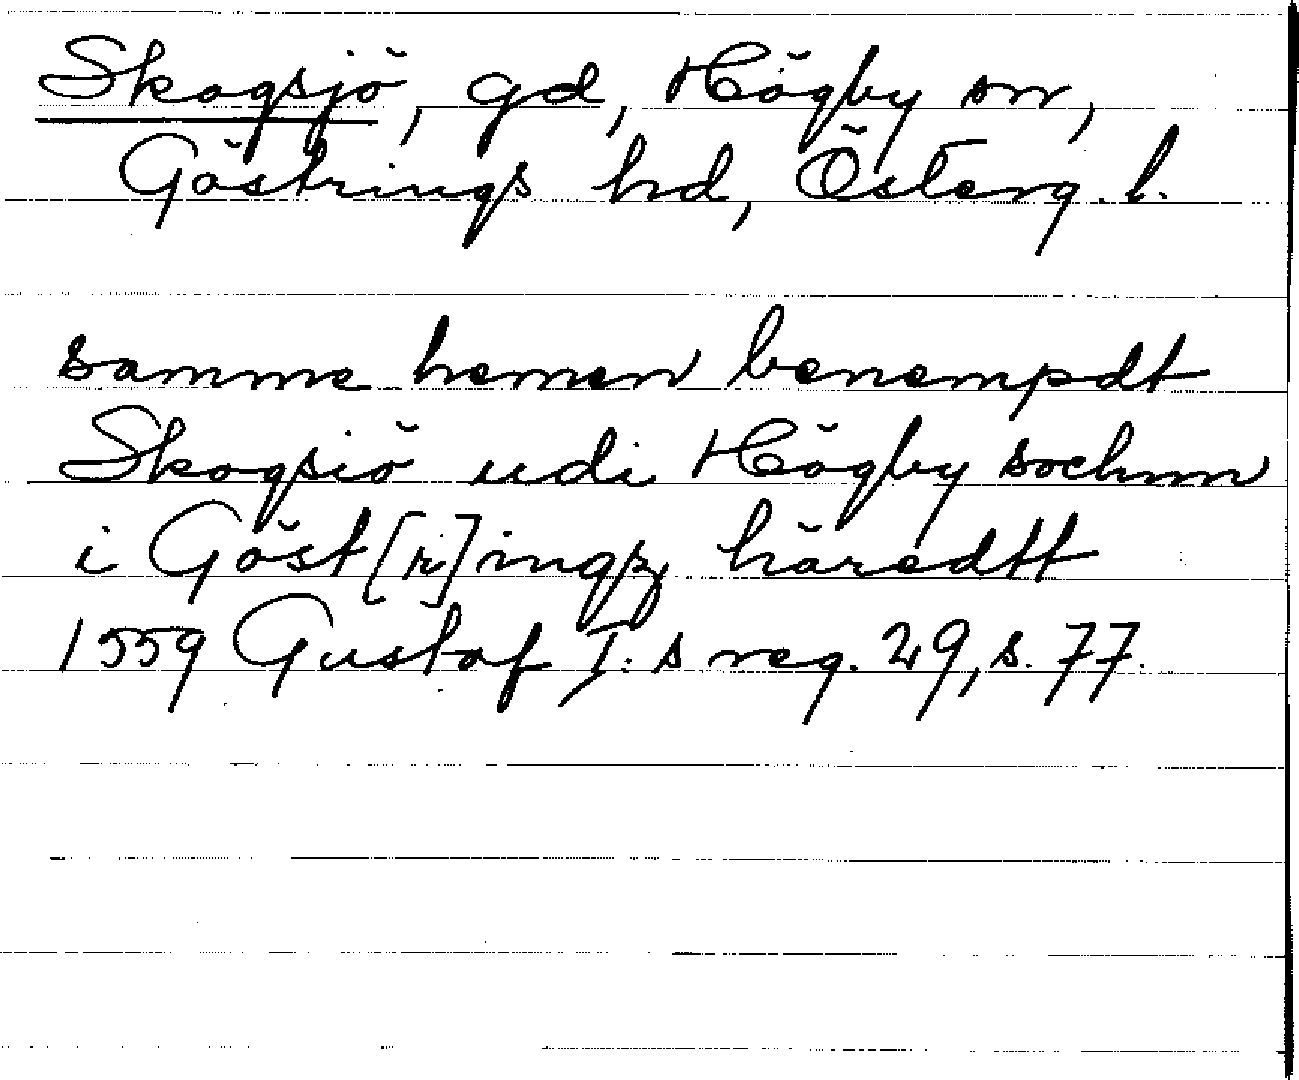 Skogsjö, gd, Högby sn,
Göstrings hd, Österg. l.
samme hemen benempdt
Skogsiö udi Högby sochnn
i Göst[r]ingz häredtt
1559 Gustaf I:s reg. 29, s. 77.